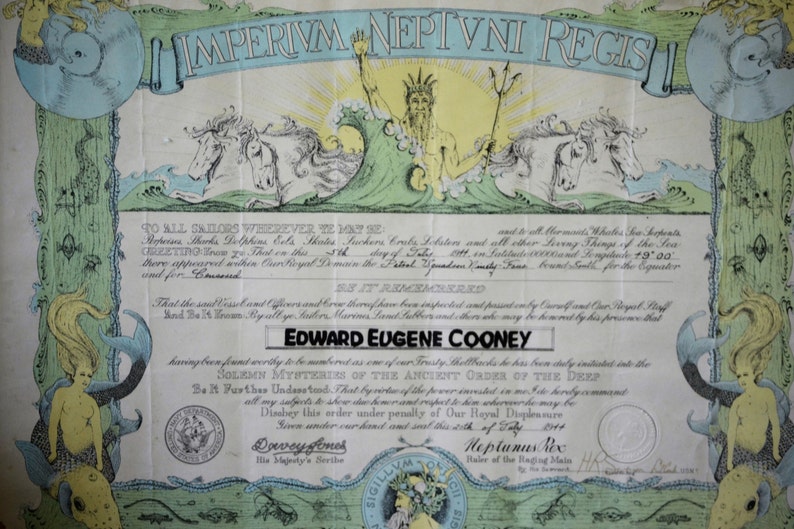 IMPERIVM NEPTVNI REGIS
TO ALL SAILORS WHEREVER YE MAY BE: and to all Mermaids, Whales, Sea Serpents,
Porpoises, Sharks, Dolphins, Eels, Skates, Suckers, Crabs, Lobsters and all other Living Things of the Sea
GREETING: Know ye: That on this 5th day of July 1944 in Latitude 00000 and Longitude 49° 00'
there appeared within Our Royal Domain the Patrol Squadron Ninety-Four bound South for the Equator
and for Censored
BE IT REMEMBERED
That the said Vessel and Officers and Crew thereof have been inspected and passed on by Ourself and Our Royal Staff
And Be It Known: By all ye Sailors, Marines, Land Lubbers and others who may be honored by his presence that
EDWARD EUGENE COONEY
having been found worthy to be numbered as one of our Trusty Shellbacks he has been duly initiated into the
SOLEMN MYSTERIES OF THE ANCIENT ORDER OF THE DEEP
Be It Further Understood: That by virtue of the power invested in me I do hereby command
all my subjects to show due honor and respect to him wherever he may be
Disobey this order under penalty of Our Royal Displeasure
Given under our hand and seal this 25th of July 1944
NAVY DEPARTMENT
UNITED STATES OF AMERICA
Davey Jones
His Majesty's Scribe
Neptunus Rex
Ruler of the Raging Main
By His Servant
USNR
SIGILLVM